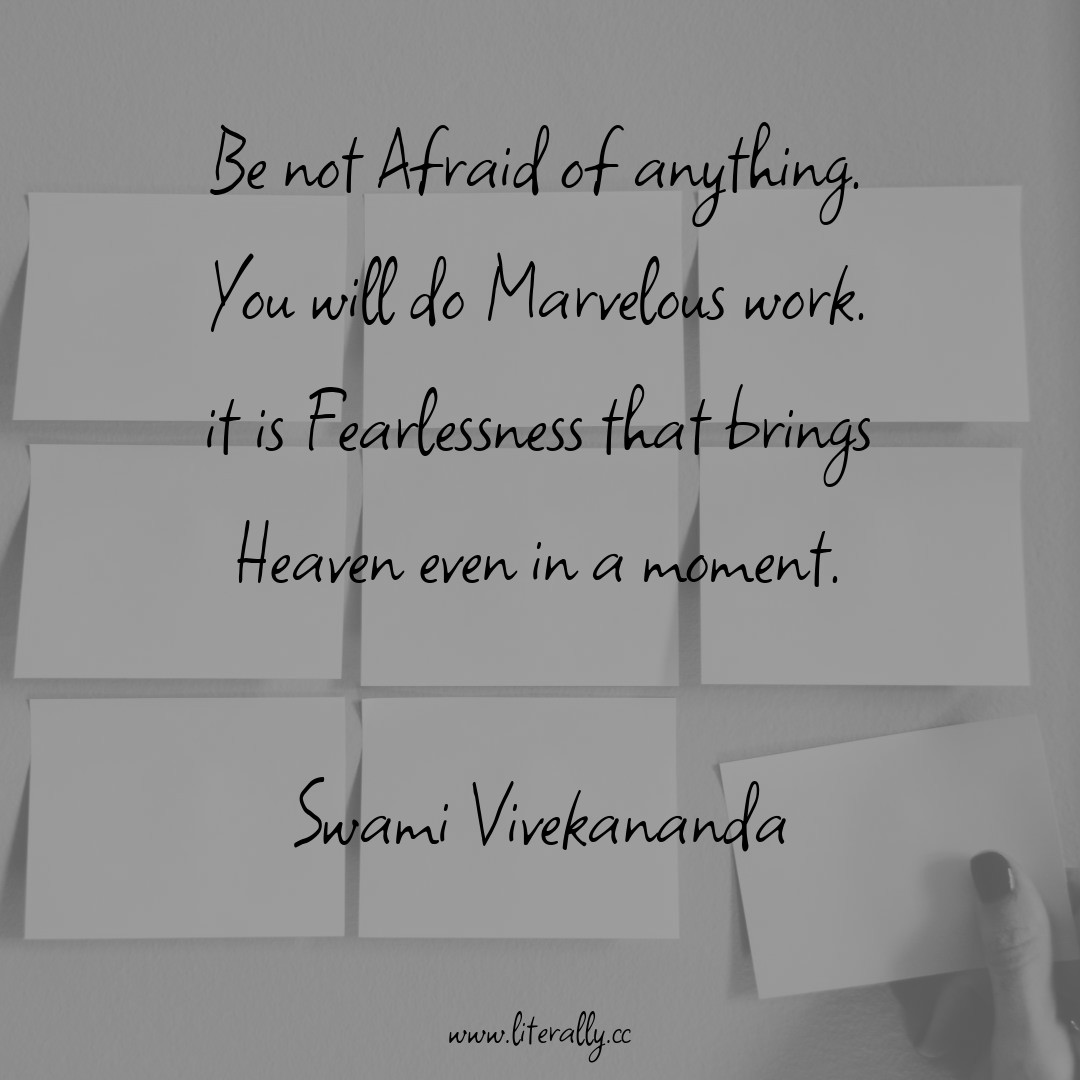 Be not Afraid of anything.
You will do Marvelous work.
it is Fearlessness that brings
Heaven even in a moment.
Swami Vivekananda
www.literally.cc